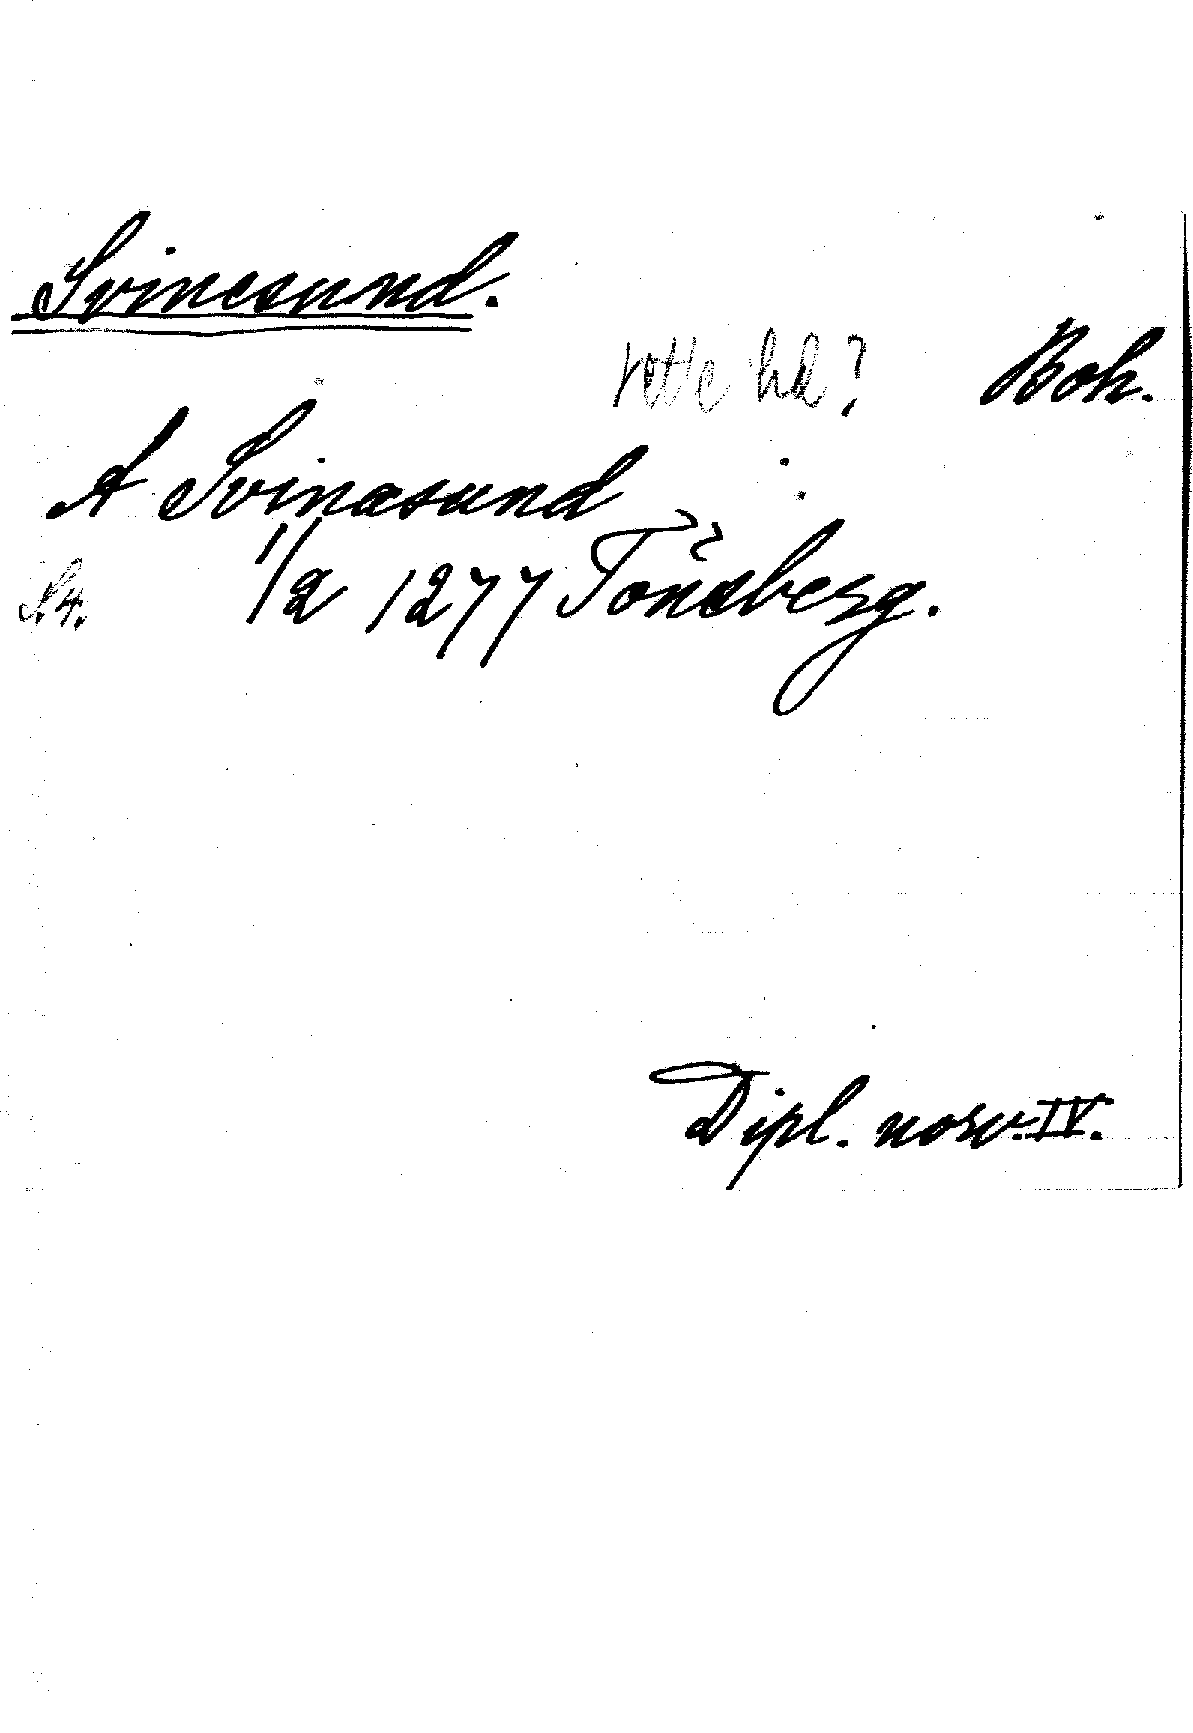 Svinesund.
Vette hd? Boh.
A Svinasund
S.4. 1/2 1277 Tönsberg.
Dipl. norv. IV.